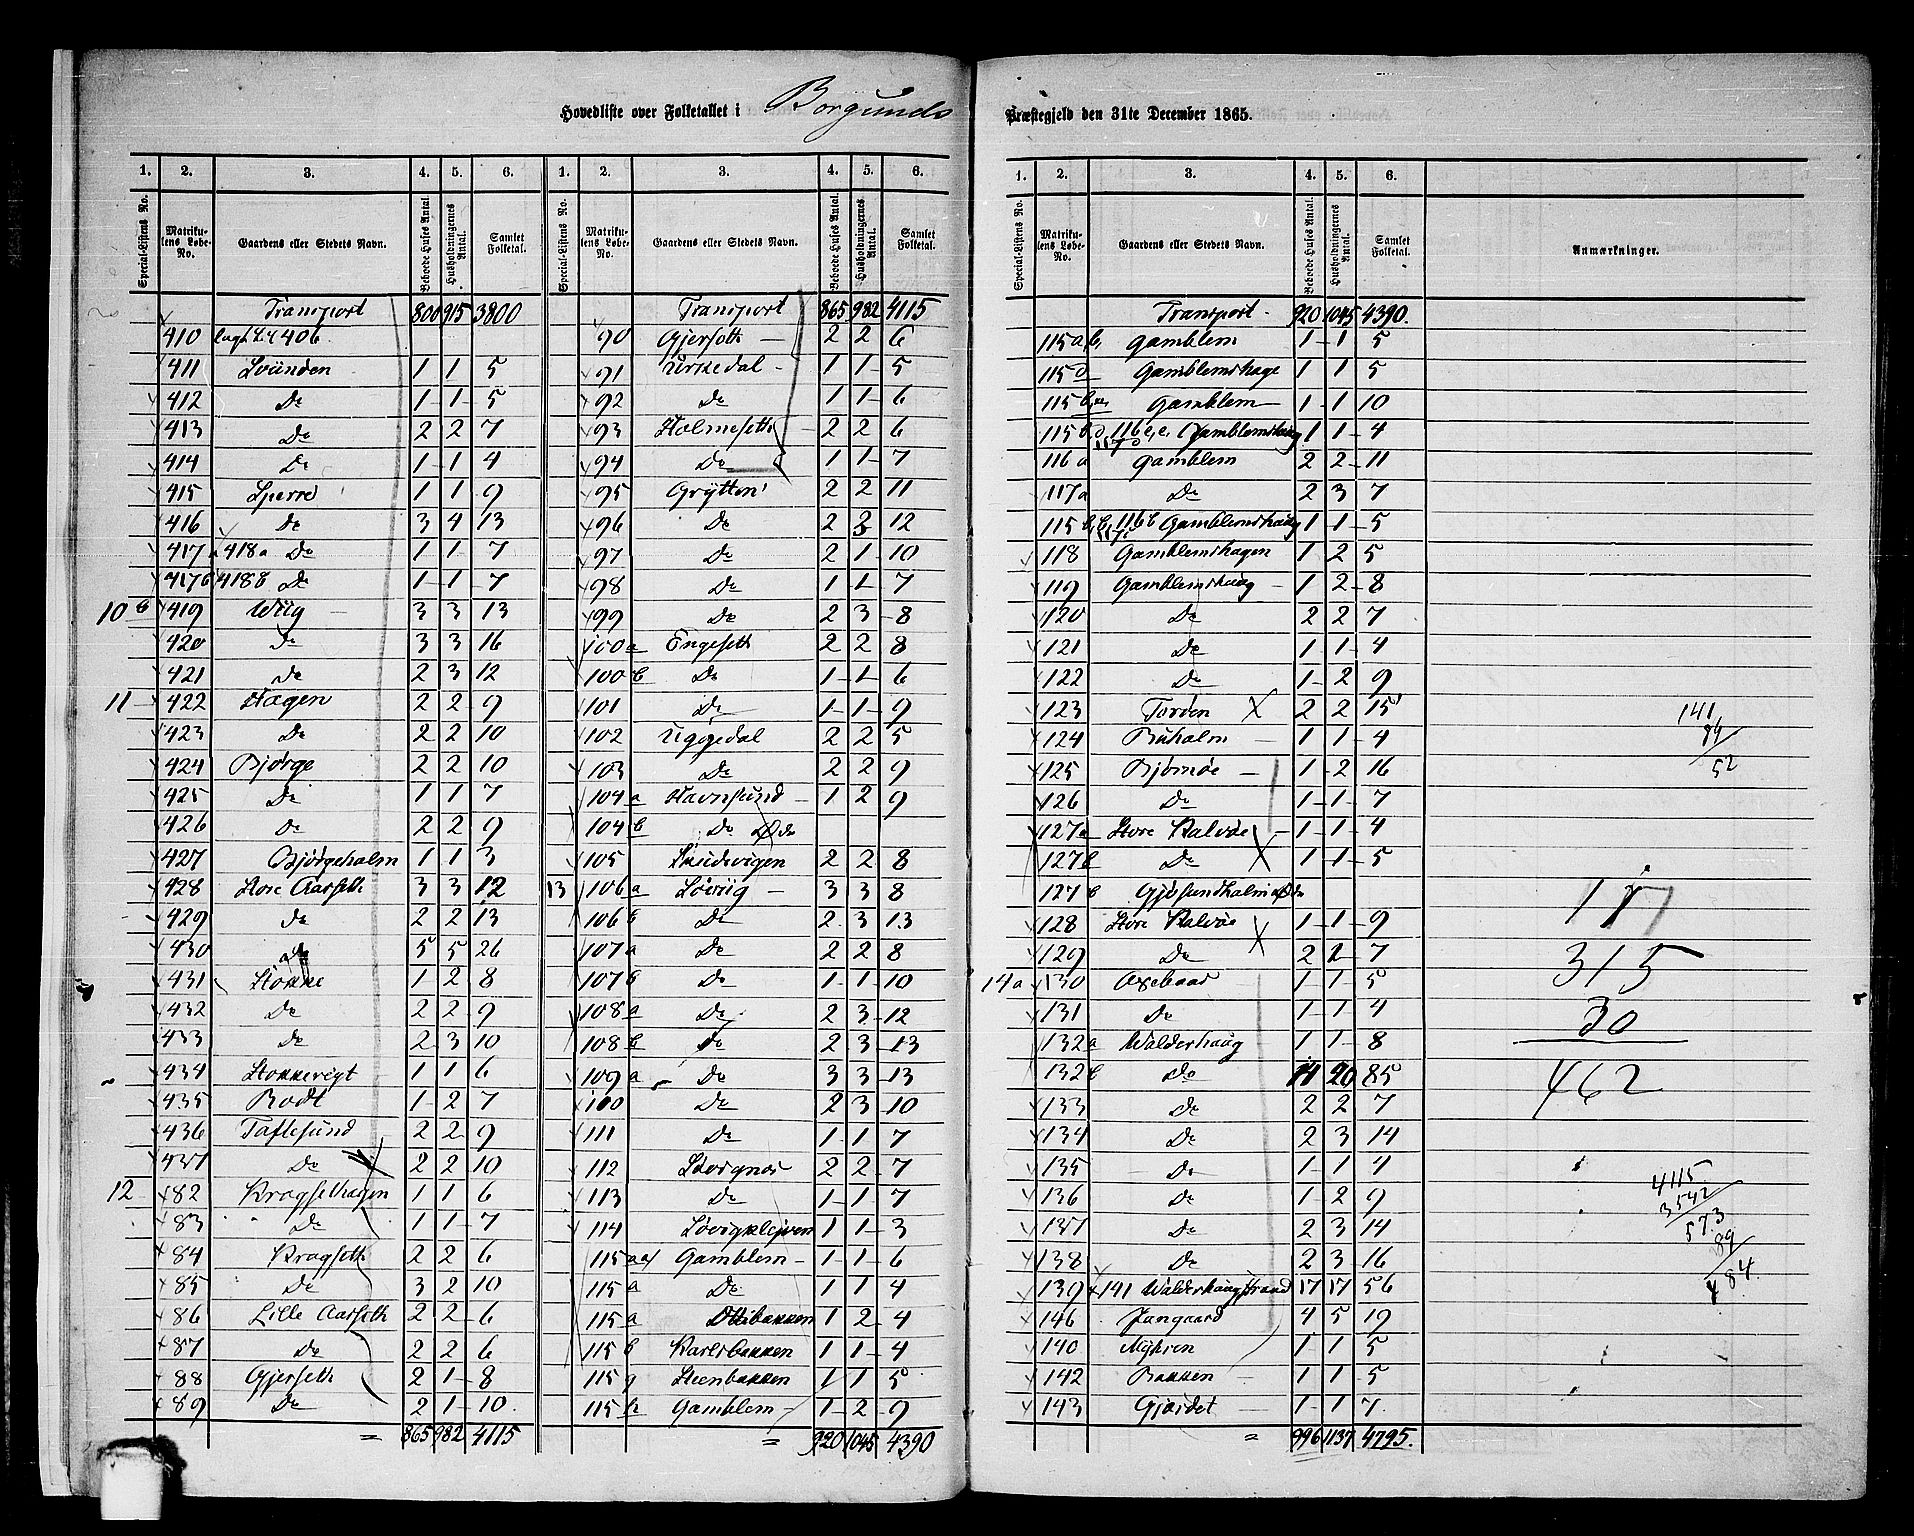 Hovedliste over Folketallet i Borgunds Præstegjeld den 31te December 1865.
1. 2. 3. 4. 5. 6. 1. 2. 3. 4. 5. 6.
Special-Listens No. Matrikulens Løbe-No. Gaardens eller Stedets Navn. Beboede Huses Antal. Husholdningernes Antal. Samlet Folketal.
Transport 800 915 3800
410 406
411 Svünden 1 1 5
412 Do 1 1 5
413 Do 2 2 7
414 Do 1 1 4
415 Sperre 1 1 9
416 Do 3 4 13
417 a 418 a Do 1 1 7
417 b 418 b Do 1 1 7
10 b 419 Wiig 3 3 13
420 Do 3 3 16
421 Do 2 3 12
11 422 Hagen 2 2 9
423 Do 2 2 10
424 Bjørge 2 2 10
425 Do 1 1 7
426 Do 2 2 9
427 Bjørgeholm 1 1 3
428 Store Aarseth 3 3 12
429 Do 2 2 13
430 Do 5 5 26
431 Stokke 1 2 8
432 Do 2 2 9
433 Do 2 3 10
434 Stokkevigt 1 1 6
435 Bodt 1 2 7
436 Taftesund 2 2 9
437 Do 2 2 10
12 82 Kragsethagen 1 1 6
83 Do 1 1 7
84 Kragseth 2 2 6
85 Do 3 2 10
86 Lille Aarseth 2 2 6
87 Do 2 2 6
88 Gjerseth 2 1 8
89 Do 2 1 10
= 865 982 4115
Special-Listens No. Matrikulens Løbe-No. Gaardens eller Stedets Navn. Beboede Huses Antal. Husholdningernes Antal. Samlet Folketal.
Transport 865 982 4115
90 Gjerseth 2 2 6
91 Urkedal 1 1 5
92 Do 1 1 6
93 Holmeseth 2 2 6
94 Do 1 1 7
95 Grÿtten 2 2 11
96 Do 2 3 12
97 Do 2 1 10
98 Do 1 1 7
99 Do 2 3 8
100 a Engeseth 2 2 8
100 b Do 1 1 6
101 Do 1 1 9
102 Uggedal 2 2 5
103 Do 2 2 9
104 a Havnsund 1 2 9
104 b Do Øde
105 Skudvigen 2 2 8
13 106 a Løviig 3 3 8
106 b Do 2 3 13
107 a Do 2 2 8
107 b Do 1 1 10
108 a Do 2 3 12
108 b Do 2 3 13
109 a Do 3 3 13
110 Do 2 3 10
111 Do 1 1 7
112 Storgnos 2 2 7
113 Do 1 1 7
114 Løvigklejven 1 1 3
115 aa Gamblem 1 1 6
115 a Do 1 1 4
115 a Ottibakken 1 2 4
115 b Karlsbakken 1 1 4
115 g Steenbakken 1 1 5
115 h Gamblem 1 2 9
= 920 1045 4390
1. 2. 3. 4. 5. 6.
Special-Listens No. Matrikulens Løbe-No. Gaardens eller Stedets Navn. Beboede Huses Antal. Husholdningernes Antal. Samlet Folketal. Anmærkninger.
Transport 920 1045 4390.
115 a, b, Gamblem 1 1 5
115 d Gamblemshage 1 1 5
115 Gamblem 1 1 10
115 b, d, 116 c, e, 117 d Gamblemshaug 1 1 4
116 a Gamblem 2 2 11
117 a Do 2 3 7
115 116 b 117 c Gamblemshaug 1 1 5
118 Gamblemshagen 1 2 5
119 Gamblemshaug 1 2 8
120 Do 2 2 7
121 Do 1 1 4
122 Do 1 2 9
123 Tørøen X 2 2 15
124 Buholm 1 1 4
125 Bjørnøe 1 2 16
126 Do 1 1 7
127 a Store Kalvøe 1 1 4
127 b Do X 1 1 5
127 c Gjøsundholm Øde
128 Store Kalvøe 1 1 9
129 Do X 2 2 7
14 a 130 Oxebaas 1 1 5
131 Do 1 1 4
132 a Walderhaug 1 1 8
132 b Do 11 20 85
133 Do 2 2 7
134 Do 2 3 14
135 Do 1 1 4
136 Do 1 2 9
137 Do 2 3 14
138 Do 2 3 16
139 141 Walderhaugstrand 17 17 56
146 Jungaard 4 5 19
140 Myhren 1 1 5
142 Bakken 1 1 5
143 Gjærdet 1 1 7
= 996 1137 4795.
141
89
52
117
315
30
462
4115
3542
573
89
484